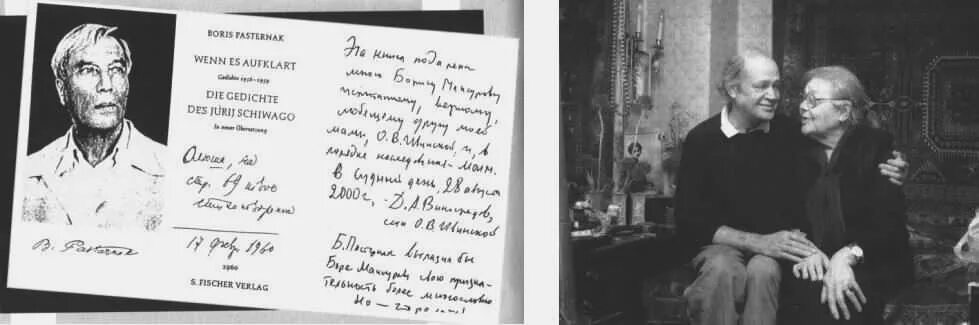 BORIS PASTERNAK
WENN ES AUFKLART
Gedichte 1956–1959
DIE GEDICHTE
DES JURIJ SCHIWAGO
In neuer Übersetzung
Олюша, на
стр. 69
17 февр 1960
1960
S. FISCHER VERLAG
B. Pasternak
Эта книга подарена
мною Борису Мансурову
верному,
любящему другу моей
мамы, О.В.Ивинской, и, в
порядке наследия – моим.
В судный день, 28 августа
2000г, – Д.А.Виноградов,
сын О.В.Ивинской
Б.Пастернак выразил бы
Боре Мансурову свою призна-
тельность более многословно
Но –